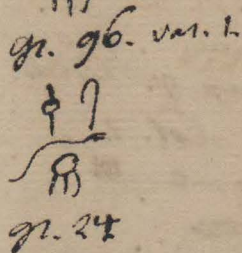 gr. 96. var. 1.
gr. 24